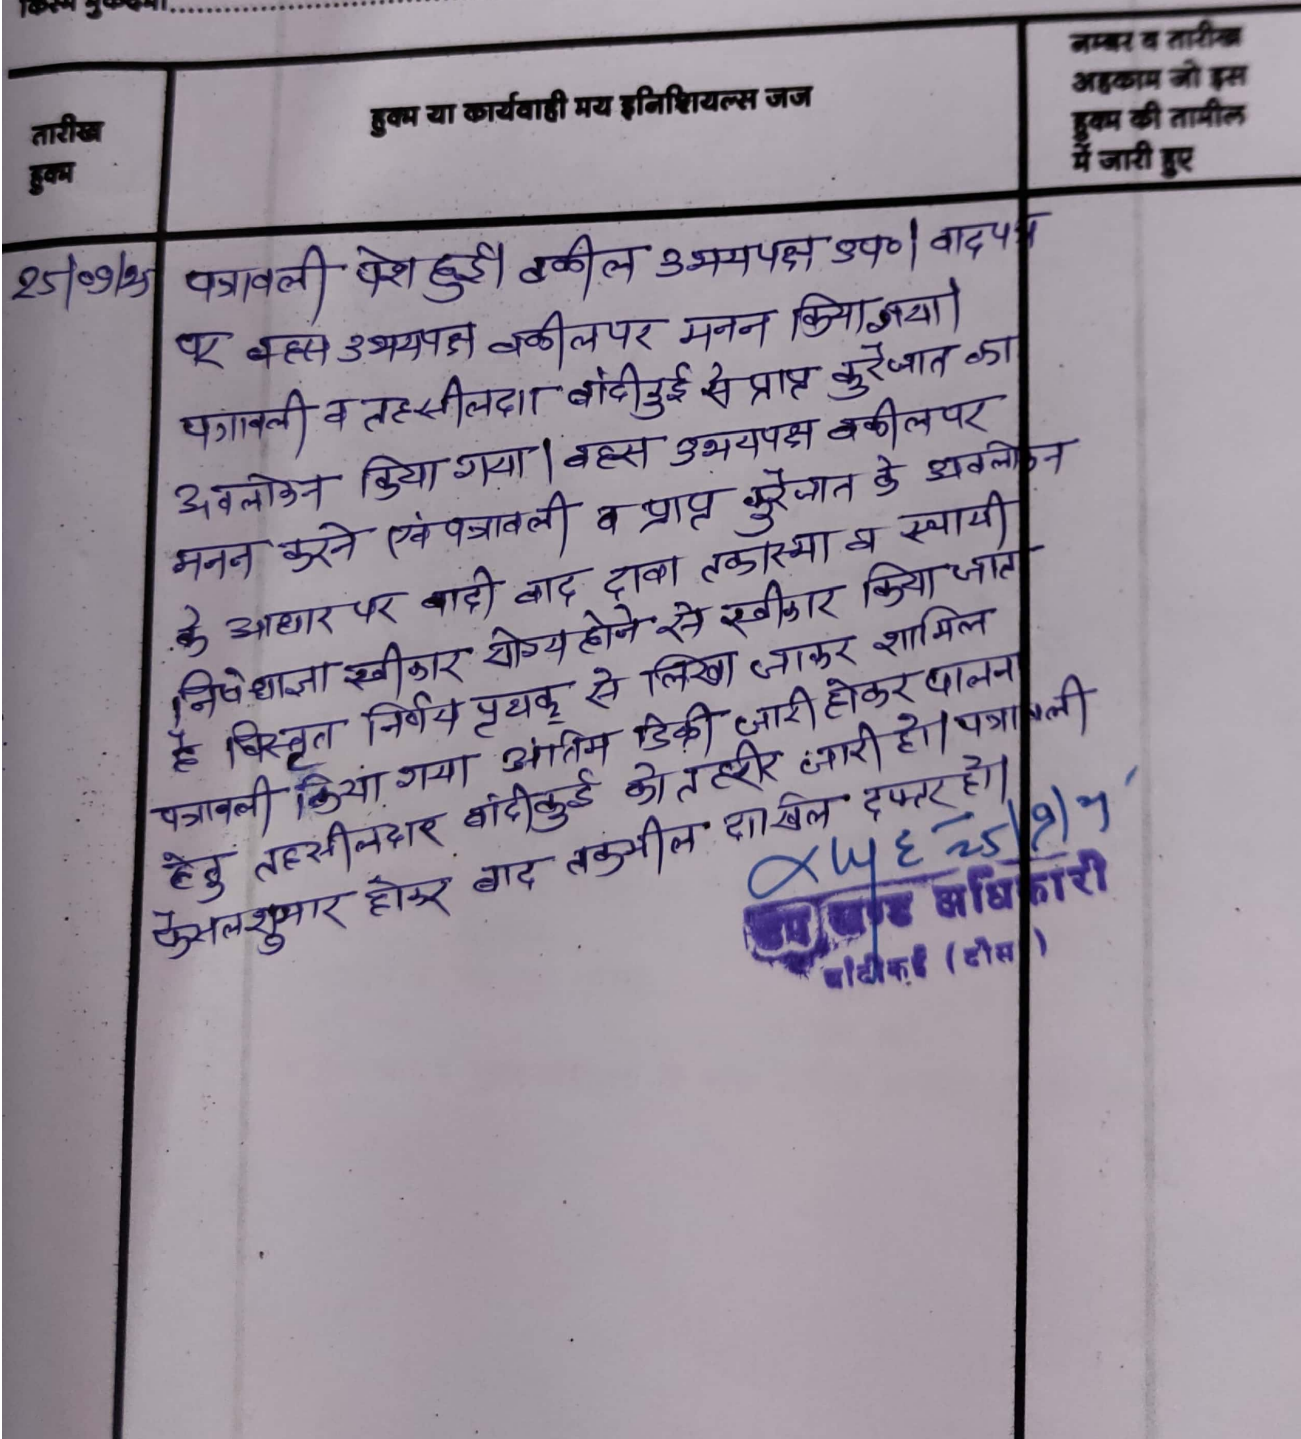 किस्म मुकदमा
तारीख
हुक्म
हुक्म या कार्यवाही मय इनिशियल्स जज
नम्बर व तारीख
अहकाम जो इस
हुक्म की तामील
में जारी हुए
25/09/25 पत्रावली पेश हुई। वकील उभयपक्ष उप०। वादपत्र
पर बहस उभयपक्ष वकील पर मनन किया गया।
पत्रावली व तहसीलदार बांदीकुई से प्राप्त कुर्रेजात का
अवलोकन किया गया। बहस उभयपक्ष वकील पर
मनन करने एवं पत्रावली व प्राप्त कुर्रेजात के अवलोकन
के आधार पर वादी वाद दावा तकास्मा व स्थायी
निषेधाज्ञा स्वीकार योग्य होने से स्वीकार किया जाता
है विस्तृत निर्णय पृथक् से लिखा जाकर शामिल
पत्रावली किया गया अंतिम डिक्री जारी होकर पालना
हेतु तहसीलदार बांदीकुई को तहरीर जारी हो। पत्रावली
फैसलशुमार होकर बाद तकमील दाखिल दफ्तर हो।
25/9/25
उप खण्ड अधिकारी
बांदीकुई (दौसा)